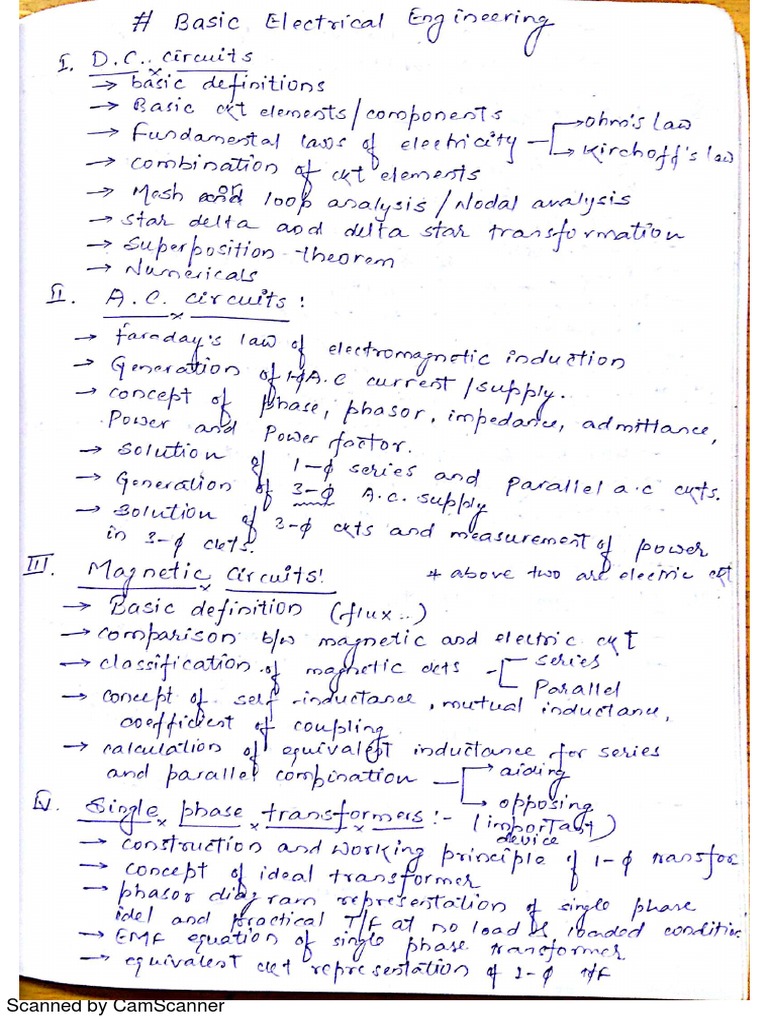 # Basic Electrical Engineering
I. D.C. circuits
→ basic definitions
→ Basic ckt elements/components
→ Fundamental laws of electricity → ohm's law
→ Kirchoff's law
→ combination of ckt elements
→ Mesh and loop analysis / Nodal analysis
→ star delta and delta star transformation
→ Superposition theorem
→ Numericals
II. A.C. circuits:
→ faraday's law of electromagnetic induction
→ Generation of 1-ϕ A.C current/supply.
→ concept of phase, phasor, impedance, admittance,
Power and Power factor.
→ solution of 1-ϕ series and parallel a.c ckts.
→ Generation of 3-ϕ A.C. supply
→ solution of 3-ϕ ckts and measurement of power
in 3-ϕ ckts.
III. Magnetic circuits! * above two are electric ckt
→ Basic definition (flux..)
→ comparison b/w magnetic and electric ckT
→ classification of magnetic ckts - series
Parallel
→ concept of self inductance, mutual inductance,
coefficient of coupling
→ calculation of equivalent inductance for series
and parallel combination → aiding
→ opposing
IV. Single phase transformers:- (important
device)
→ construction and working principle of 1-ϕ transfor
→ concept of ideal transformer
→ phasor diagram representation of single phase
idel and practical T/F at no load & loaded conditio
→ EMF equation of single phase transformer
→ equivalent ckt representation of 1-ϕ T/F
Scanned by CamScanner